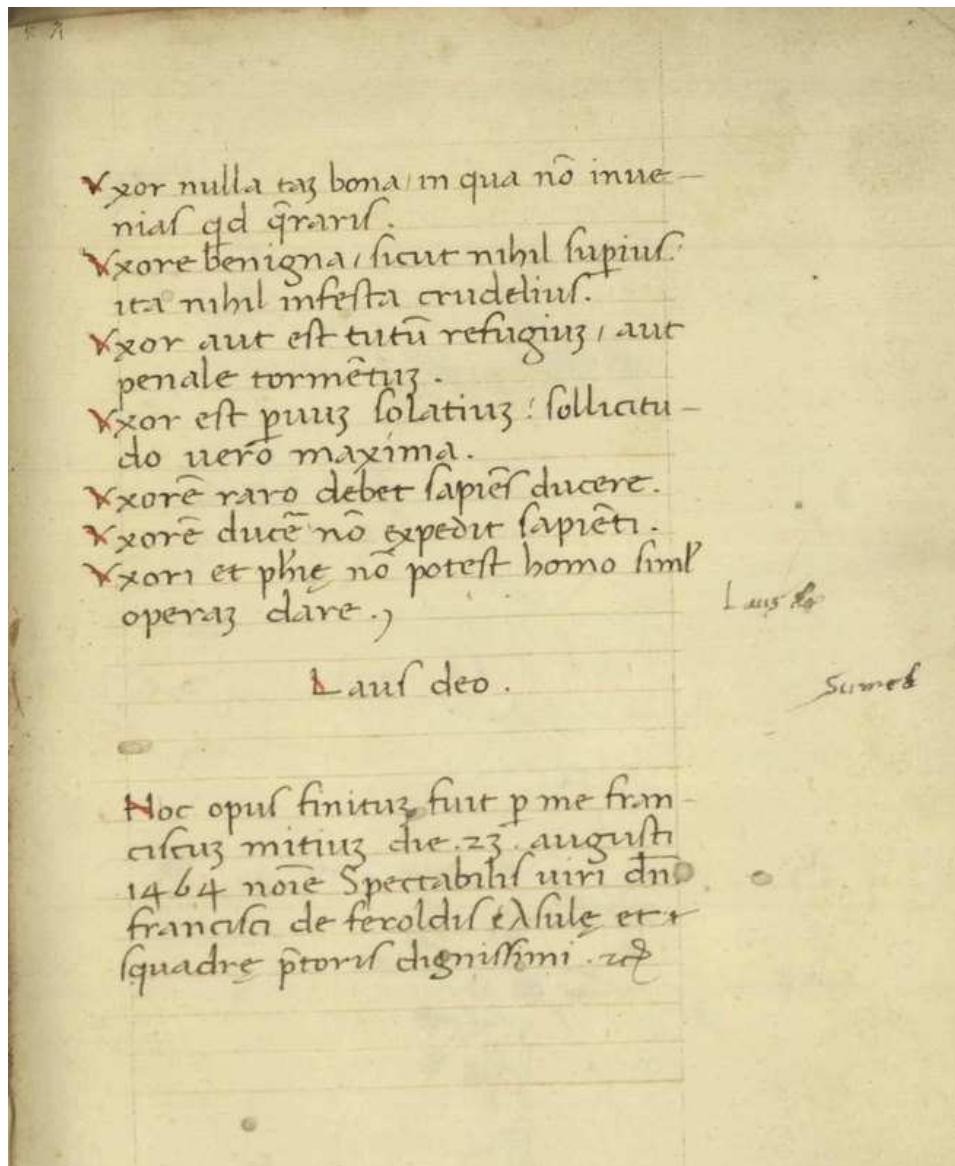 Vxor nulla taʒ bona / in qua nō inue-
nias qd q̄raris.
Vxore benigna / sicut nihil sup̄ius:
ita nihil infesta crudelius.
Vxor aut est tutū refugiuʒ / aut
penale tormētuʒ.
Vxor est ꝑuuʒ solatiuʒ: sollicitu-
do uero maxima.
Vxorē raro debet sapiēs ducere.
Vxorē ducē nō expedit sapiēti.
Vxori et ph̄ię nō potest homo siml̓
operaʒ dare.
Laus deo
Laus deo.
Hoc opus finituʒ fuit ꝑ me fran-
ciscuʒ mitiuʒ die .23. augusti
1464 noīe Spectabilis uiri dn̄i
francisci de feroldis et
squadrę p̄toris dignissimi. ⁊cꝭ